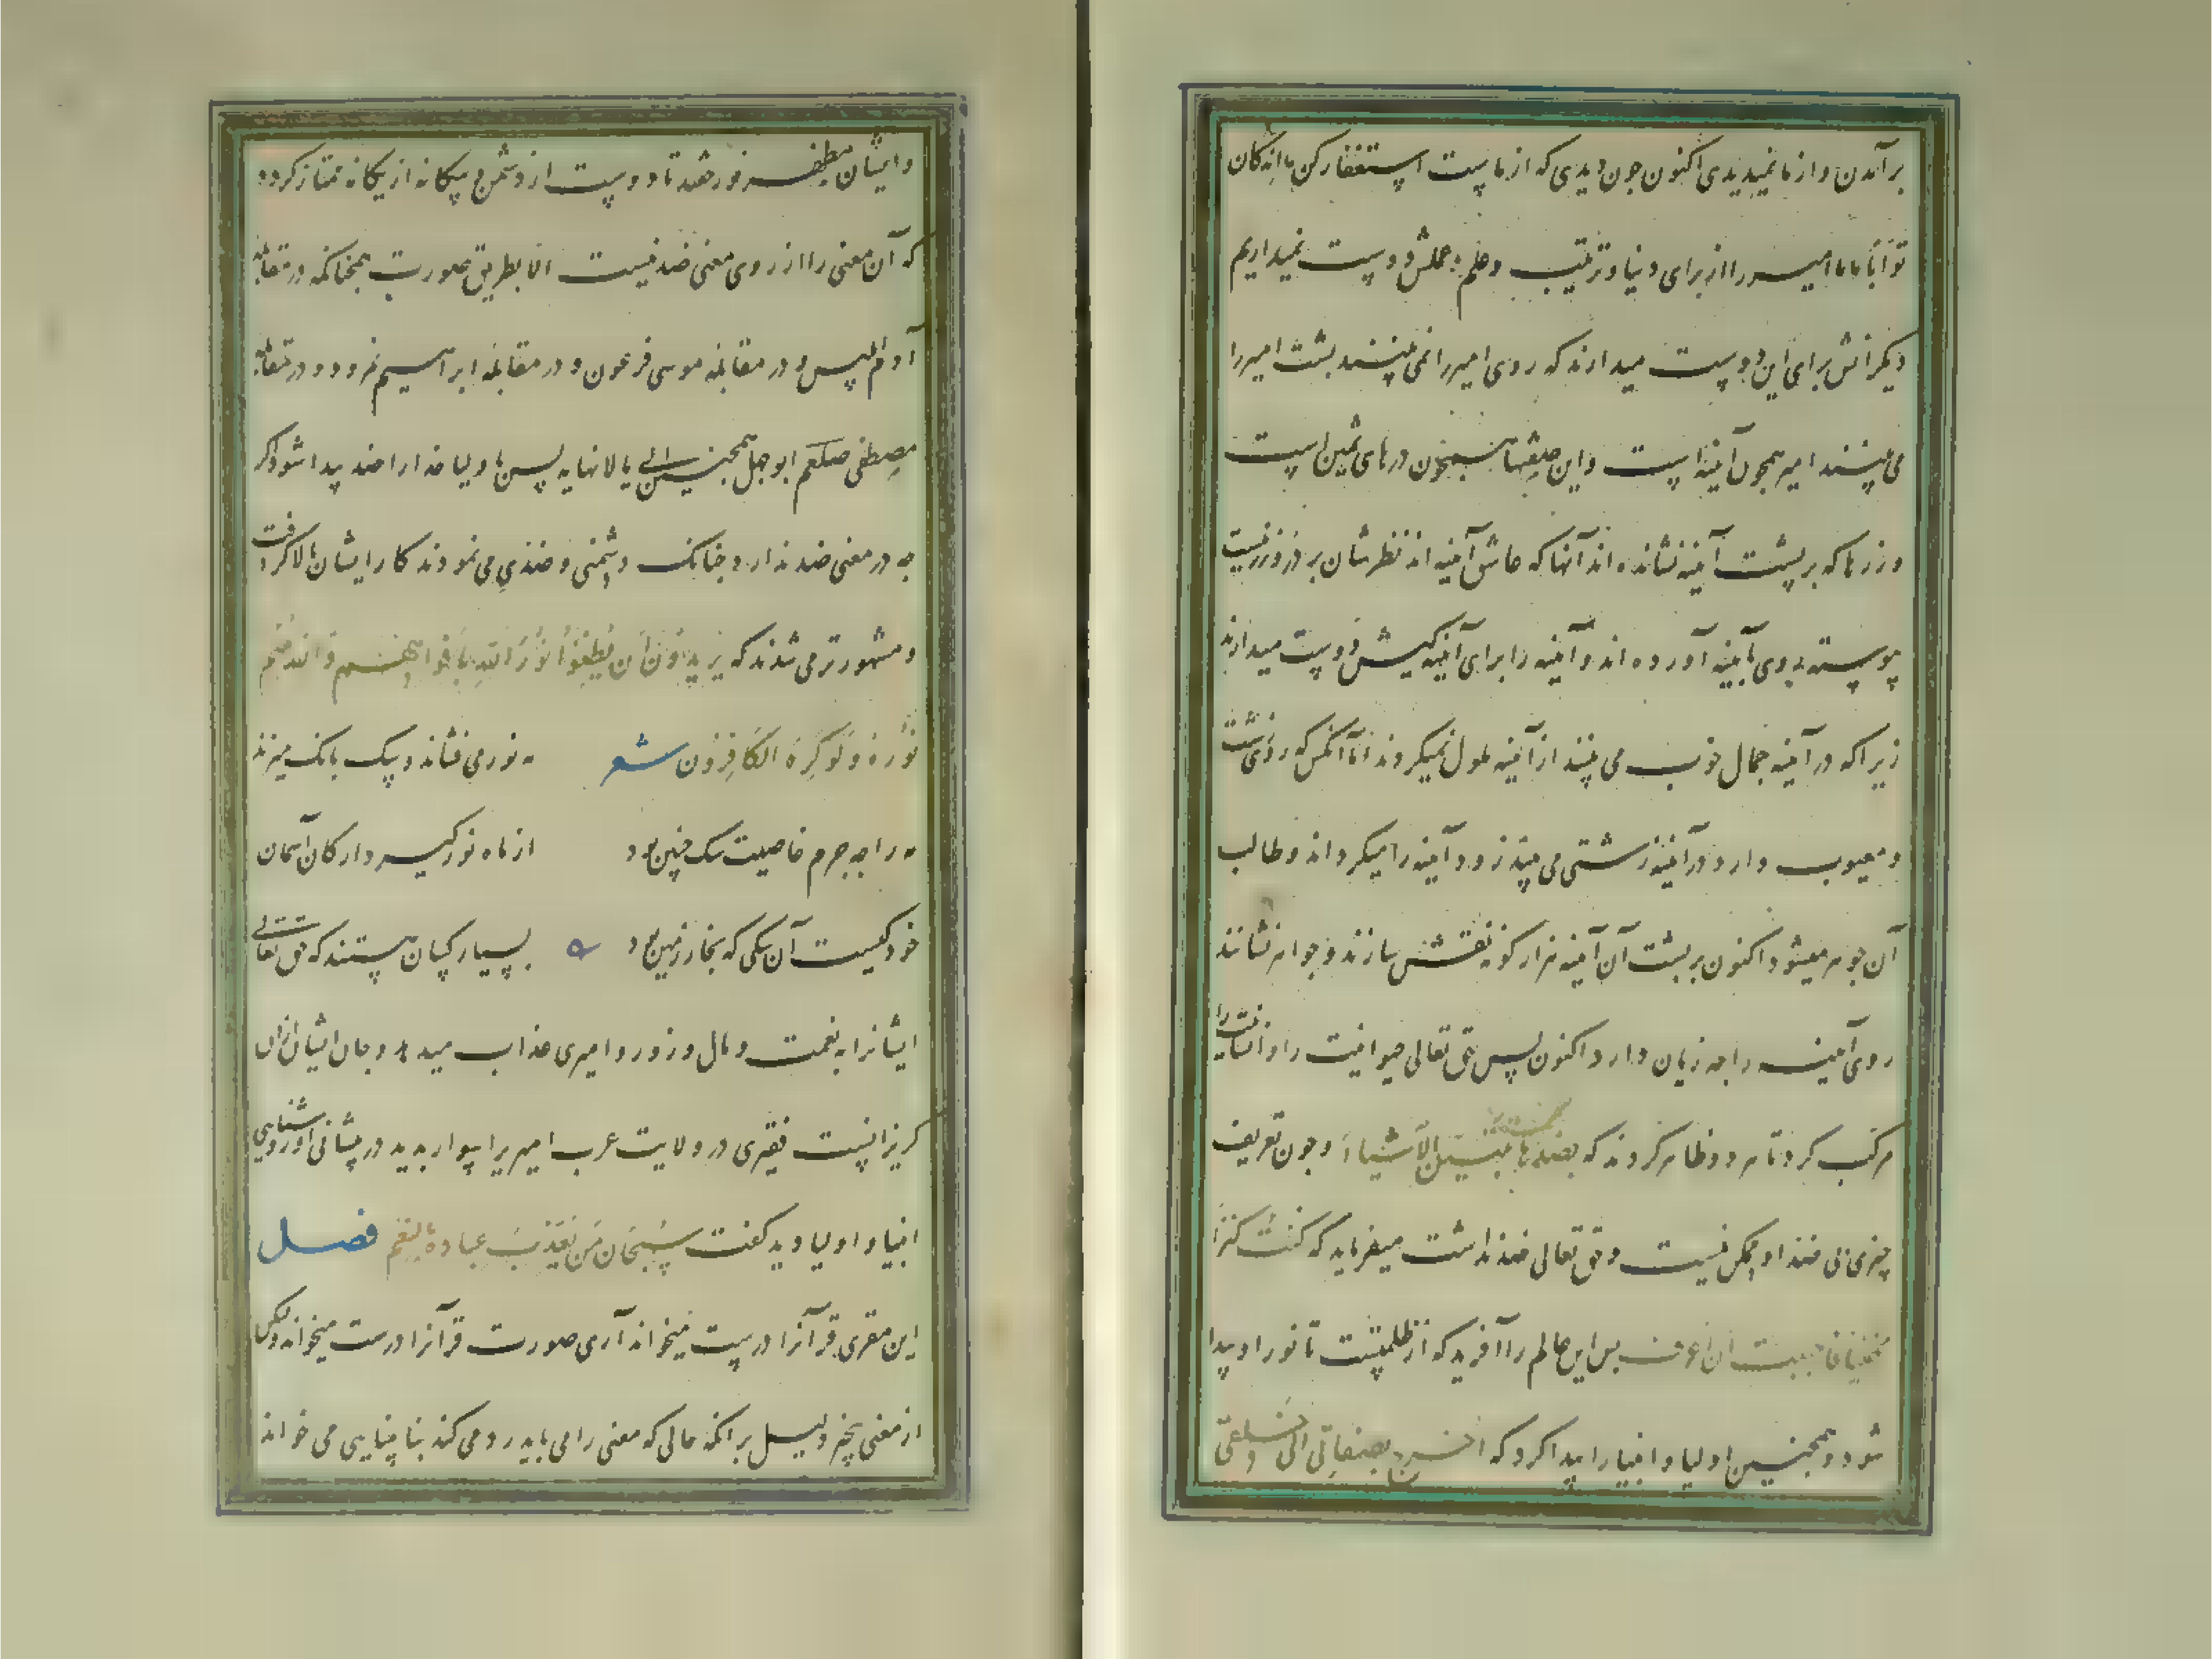 برآمدن و از ما نمیدیدی اکنون چون دیدی که از ماست استغفار کن
دیگرانش برای این دوست میدارند که روی امیر را نمی بینند پشت امیر را
می بینند امیر همچون آینه است و این صفتها همچون درهای ثمین است
و زرها که بر پشت آینه نشانده اند آنها که عاشق آینه اند نظرشان بر در و زر نیست
پیوسته روی بآینه آورده اند و آینه را برای آینگیش دوست میدارند
زیرا که در آینه جمال خوب می بینند از آینه ملول نمیگردند اما آنکس که روی زشت
و معیوب دارد در آینه زشتی می بیند زود آینه را میگرداند و طالب
آن جوهر میشود اکنون بر پشت آن آینه هزار گونه نقش سازند و جواهر نشانند
روی آینه را چه زیان دارد اکنون پس حق تعالی حیوانیت را و انسانیت را
مرکب کرد تا هر دو ظاهر گردند که بضدها تتبین الاشیاء و چون تعریف
چیزی بی ضد او ممکن نیست و حق تعالی ضد نداشت میفرماید که کنت کنزا
مخفیا فاحببت ان اعرف پس این عالم را آفرید که از ظلمتست تا نور او پیدا
شود و همچنین اولیا و انبیا را پیدا کرد که اخرج بصفاتی الی خلقی
و ایشان مظهر نور حقند تا دوست از دشمن و بیگانه از یگانه ممتاز گردد
که آن معنی را از روی معنی ضد نیست الا بطریق صورت همچنانکه در مقابله
آدم ابلیس و در مقابله موسی فرعون و در مقابله ابراهیم نمرود و در مقابله
مصطفی صلعم ابوجهل همچنین الی ما لا نهایه پس باولیا خدا را ضد پیدا شود اگر
چه در معنی ضد ندارد چنانک دشمنی و ضدی می نمودند کار ایشان بالا گرفت
و مشهورتر می شدند که یُریدُونَ اَن یُطفِؤُا نُورَ اللهِ بِاَفواهِهِم وَاللهُ مُتِمُّ
نُورِه وَلَو کَرِهَ الکَافِرُون شعر مه نور می فشاند و سگ بانگ میزند
مه را چه جرم خاصیت سگ چنین بود از ماه نور گیرد ارکان آسمان
خود کیست آن سگی که بخار زمین بود بسیار کسان هستند که حق تعالی
ایشانرا به نعمت و مال و زر و امیری عذاب میدهد و جان ایشان از آن
گریزانست فقیری در ولایت عرب امیریرا سوار بدید در پیشانی او روشنایی
انبیا و اولیا دید گفت سُبحَان مَن یُعَذِّبُ عِبادَهُ بِالنِّعَم فصل
این مقری قرآنرا درست میخواند آری صورت قرآنرا درست میخواند ولیکن
از معنی بیخبر دلیل بر آنکه حالی که معنی را می یابد رد می کند بنا بینایی می خواند